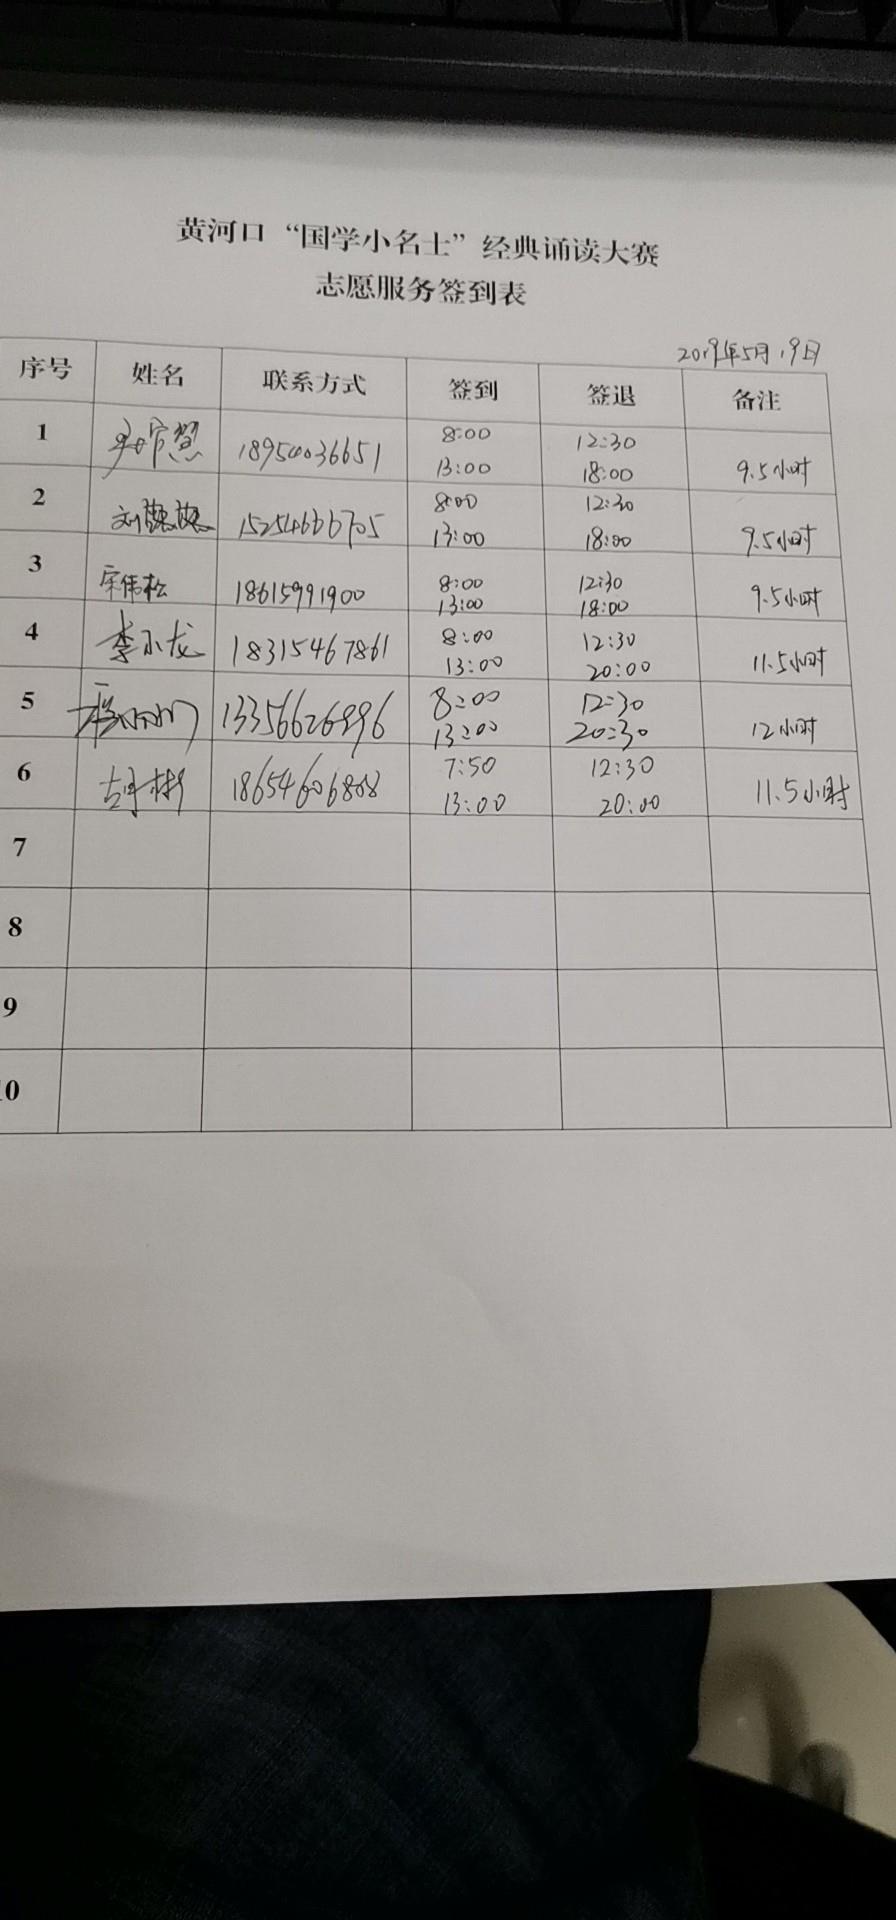 黄河口“国学小名士”经典诵读大赛
志愿服务签到表
2019年5月19日
序号 姓名 联系方式 签到 签退 备注
1 18954036651 8:00 12:30
13:00 18:00 9.5小时
2 刘 15254666705 8:00 12:30
13:00 18:00 9.5小时
3 宋伟松 18615991900 8:00 12:30
13:00 18:00 9.5小时
4 李小龙 18315467861 8:00 12:30
13:00 20:00 11.5小时
5 13356626896 8:00 12:30
13:00 20:30 12小时
6 18654606808 7:50 12:30
13:00 20:00 11.5小时
7
8
9
10